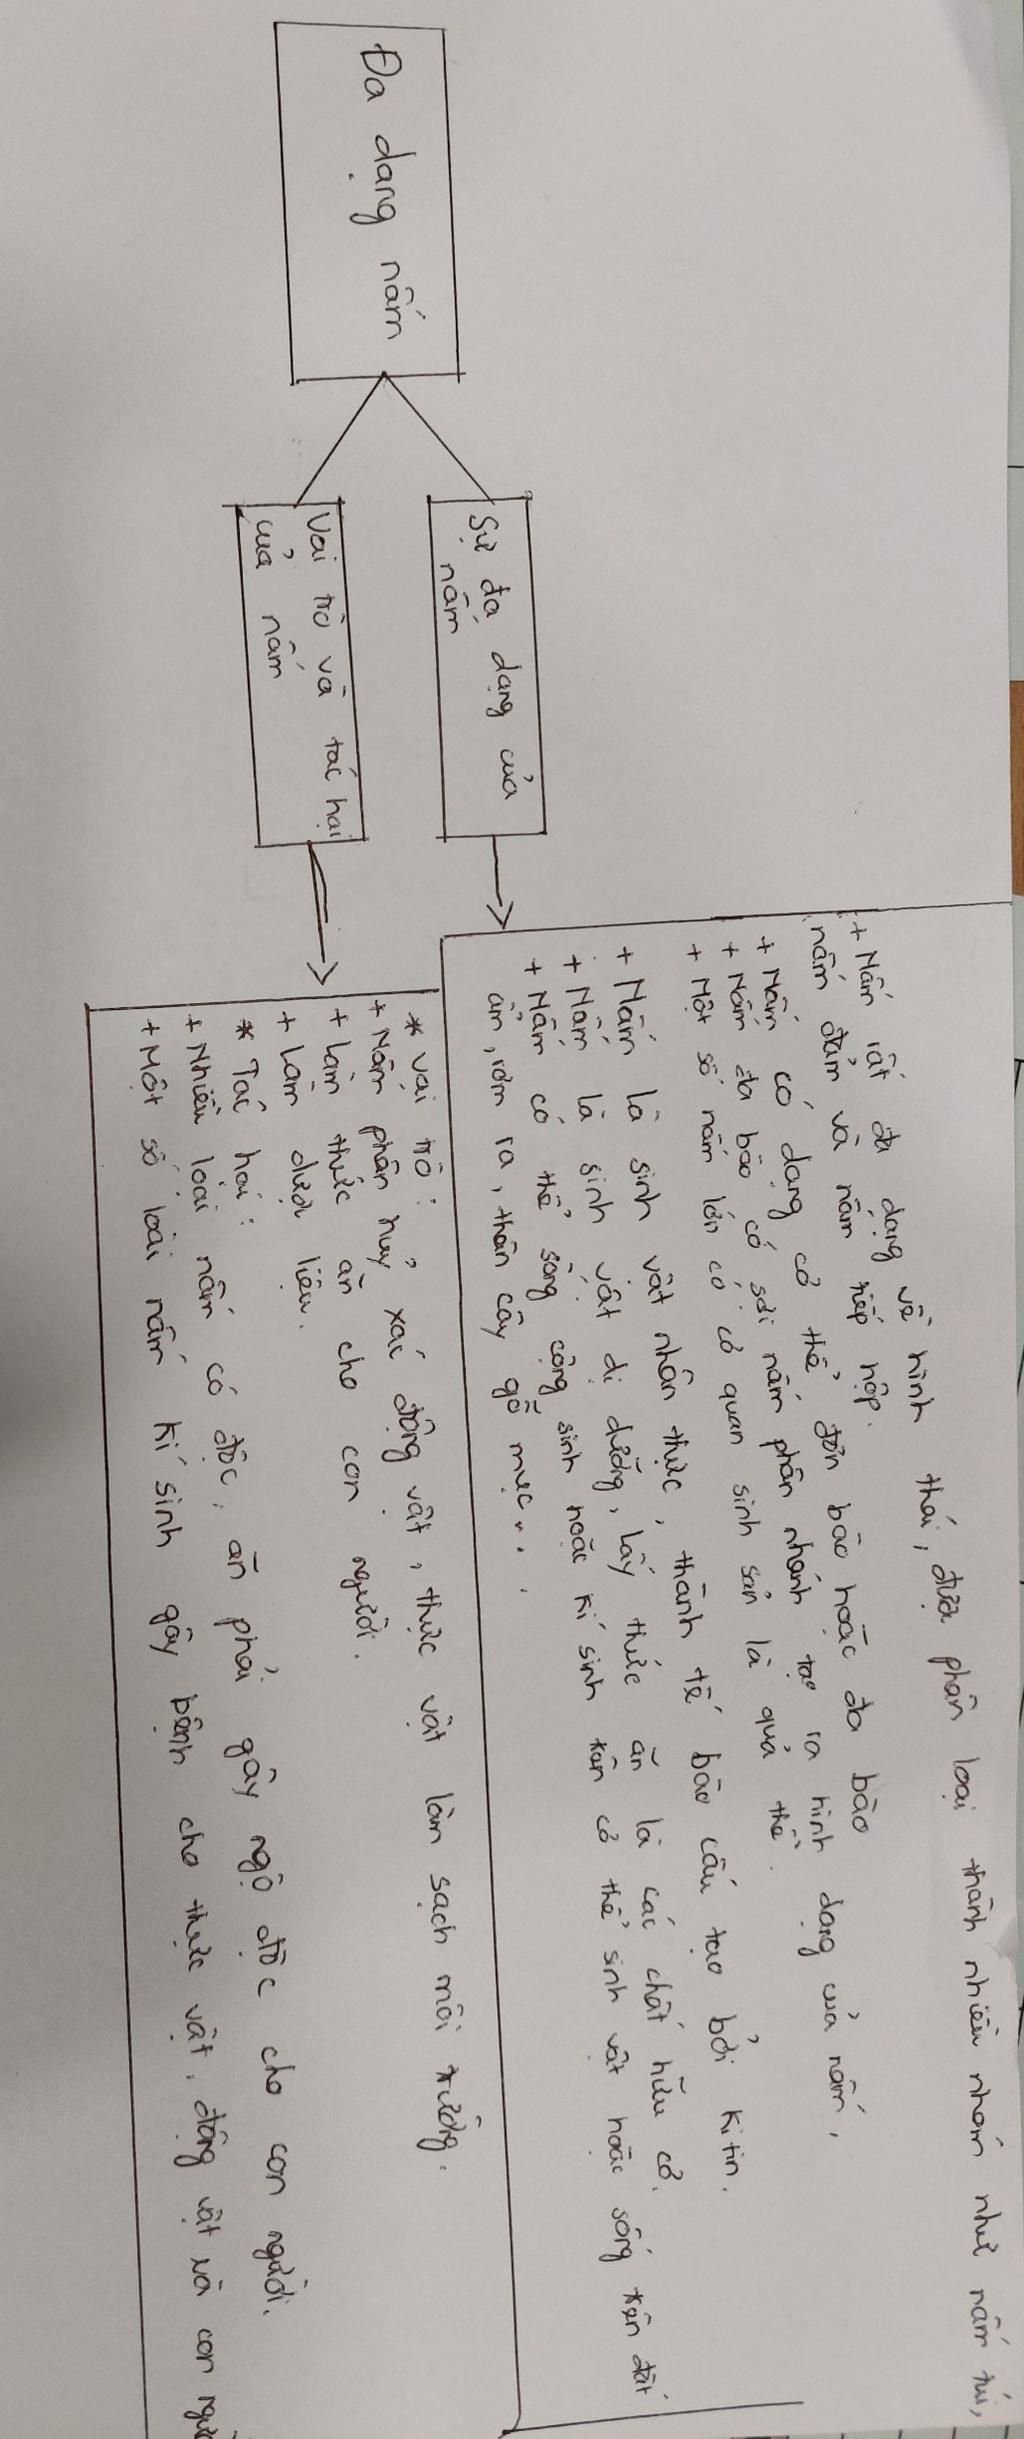 Đa dạng nấm
Sự đa dạng của
nấm
+ Nấm rất đa dạng về hình thái, được phân loại thành nhiều nhóm như nấm túi,
nấm đảm và nấm tiếp hợp.
+ Nấm có dạng cơ thể đơn bào hoặc đa bào
+ Nấm đa bào có sợi nấm phân nhánh tạo ra hình dạng của nấm,
+ Một số nấm lớn có cơ quan sinh sản là quả thể.
+ Nấm là sinh vật nhân thực, thành tế bào cấu tạo bởi kitin.
+ Nấm là sinh vật dị dưỡng, lấy thức ăn là các chất hữu cơ.
+ Nấm có thể sống cộng sinh hoặc kí sinh trên cơ thể sinh vật hoặc sống trên đất
ẩm, rơm rạ, thân cây gỗ mục...
Vai trò và tác hại
của nấm
* Vai trò:
+ Nấm phân huỷ xác động vật, thực vật làm sạch môi trường.
+ Làm thức ăn cho con người.
+ Làm dược liệu.
* Tác hại:
+ Nhiều loại nấm có độc, ăn phải gây ngộ độc cho con người.
+ Một số loài nấm kí sinh gây bệnh cho thực vật, động vật và con người